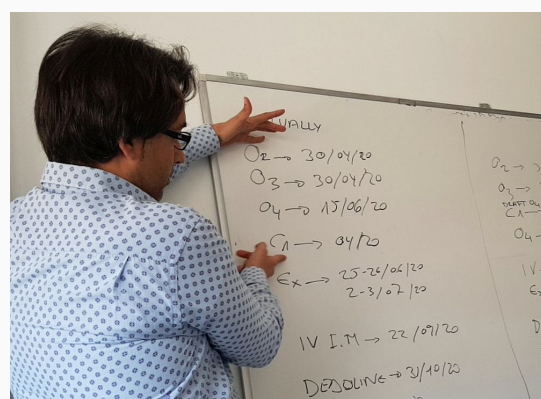 UALLY
O2 → 30/04/20
O3 → 30/04/20
O4 → 15/06/20
C1 → 04/20
Ex → 25-26/06/20
2-3/07/20
IV I.M → 22/09/20
DEADLINE → 31/10/20
O2 →
O3 →
DRAFT O4
C1 →
O4 →
IV
Ex
D